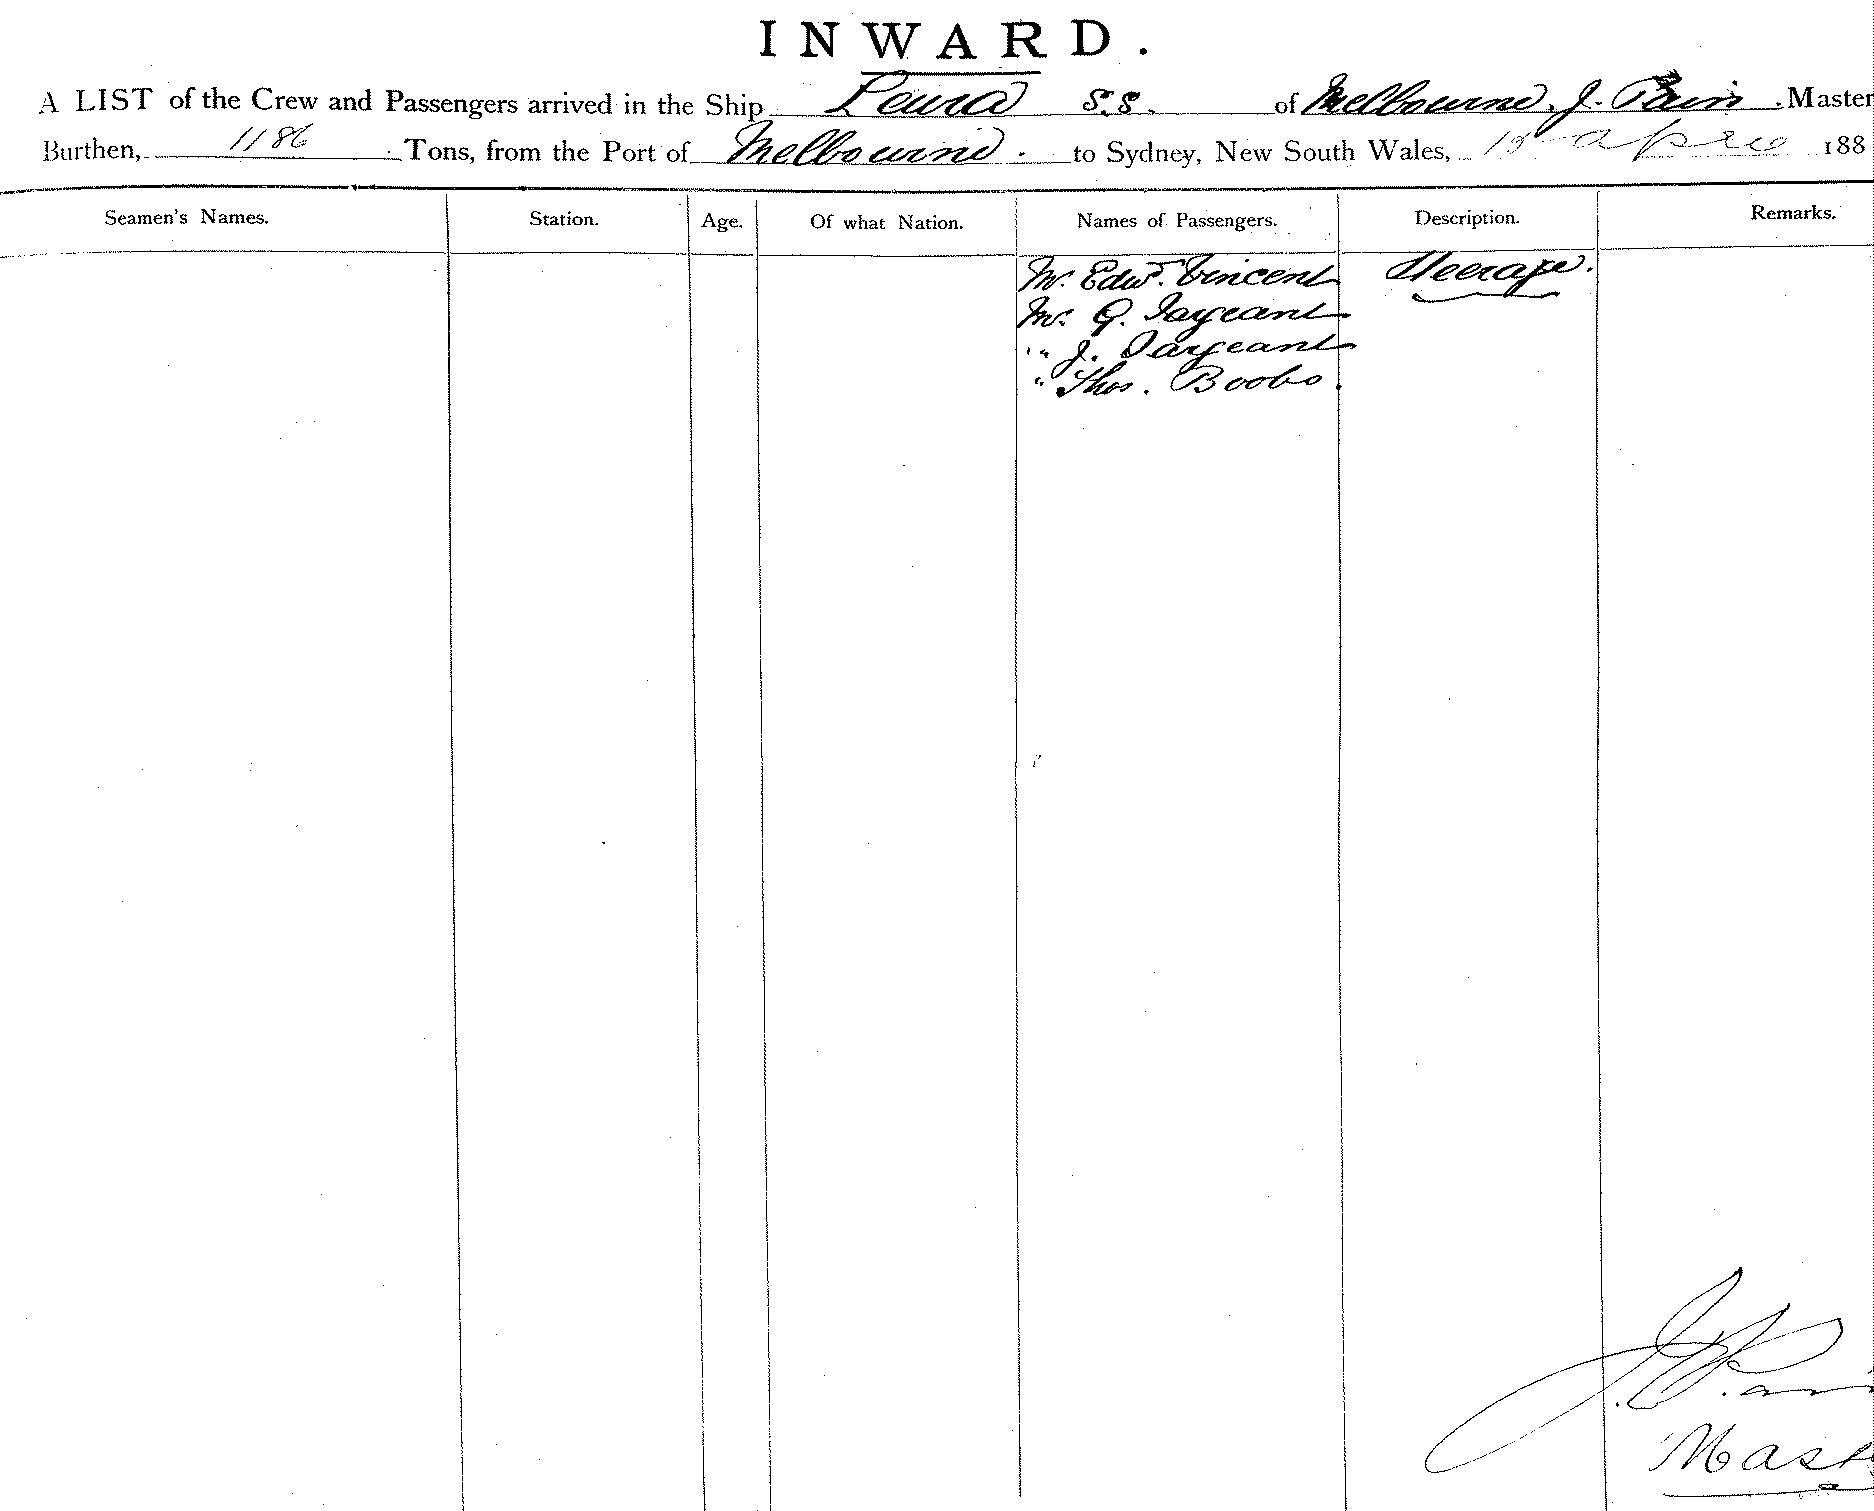 INWARD.
A LIST of the Crew and Passengers arrived in the Ship Leura S.S. of Melbourne, J. Pain, Master
Burthen, 1186 Tons, from the Port of Melbourne. to Sydney, New South Wales, April 188
Seamen's Names. Station. Age. Of what Nation. Names of Passengers. Description. Remarks.
Mr. Edwd. Vincent Steerage.
Mr. G. Sargeant
" J. Sargeant
" Thos. Boobs.
J. Pain
Mast